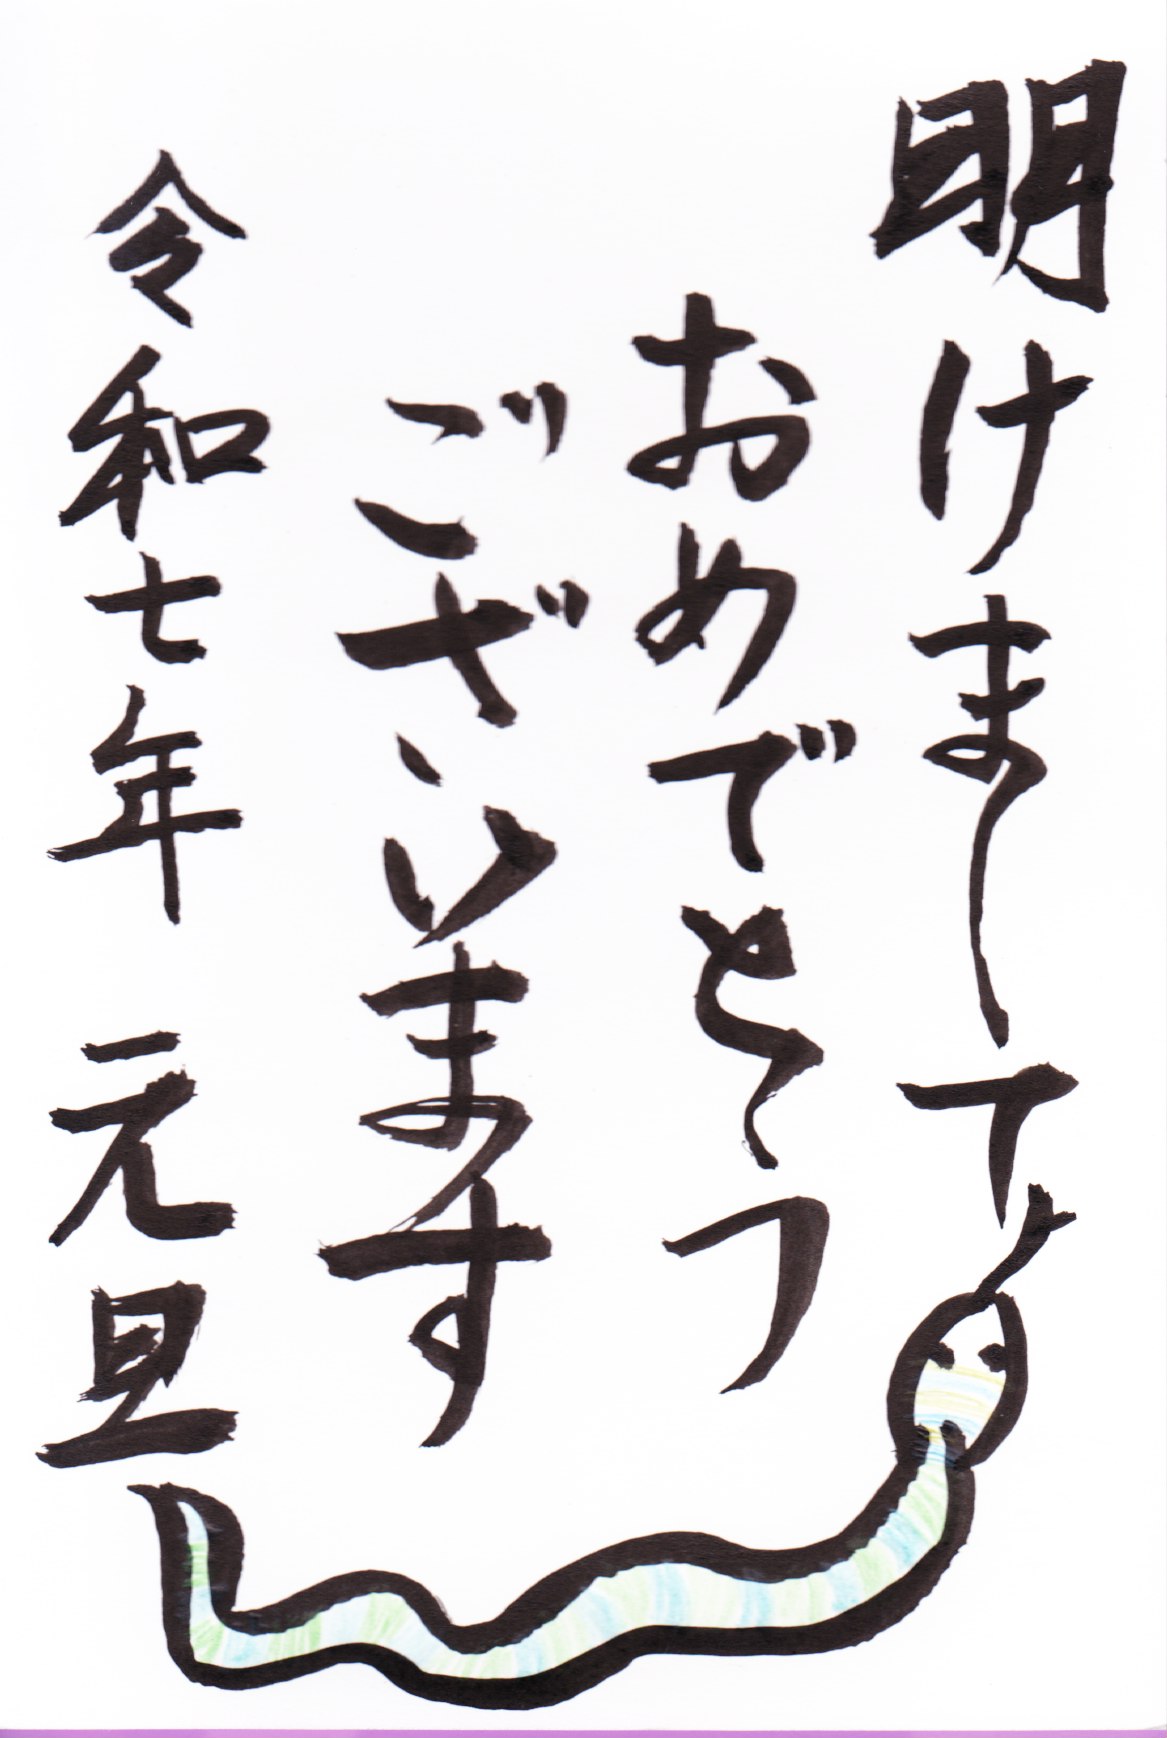 明けまして
おめでとう
ございます
令和七年 元旦